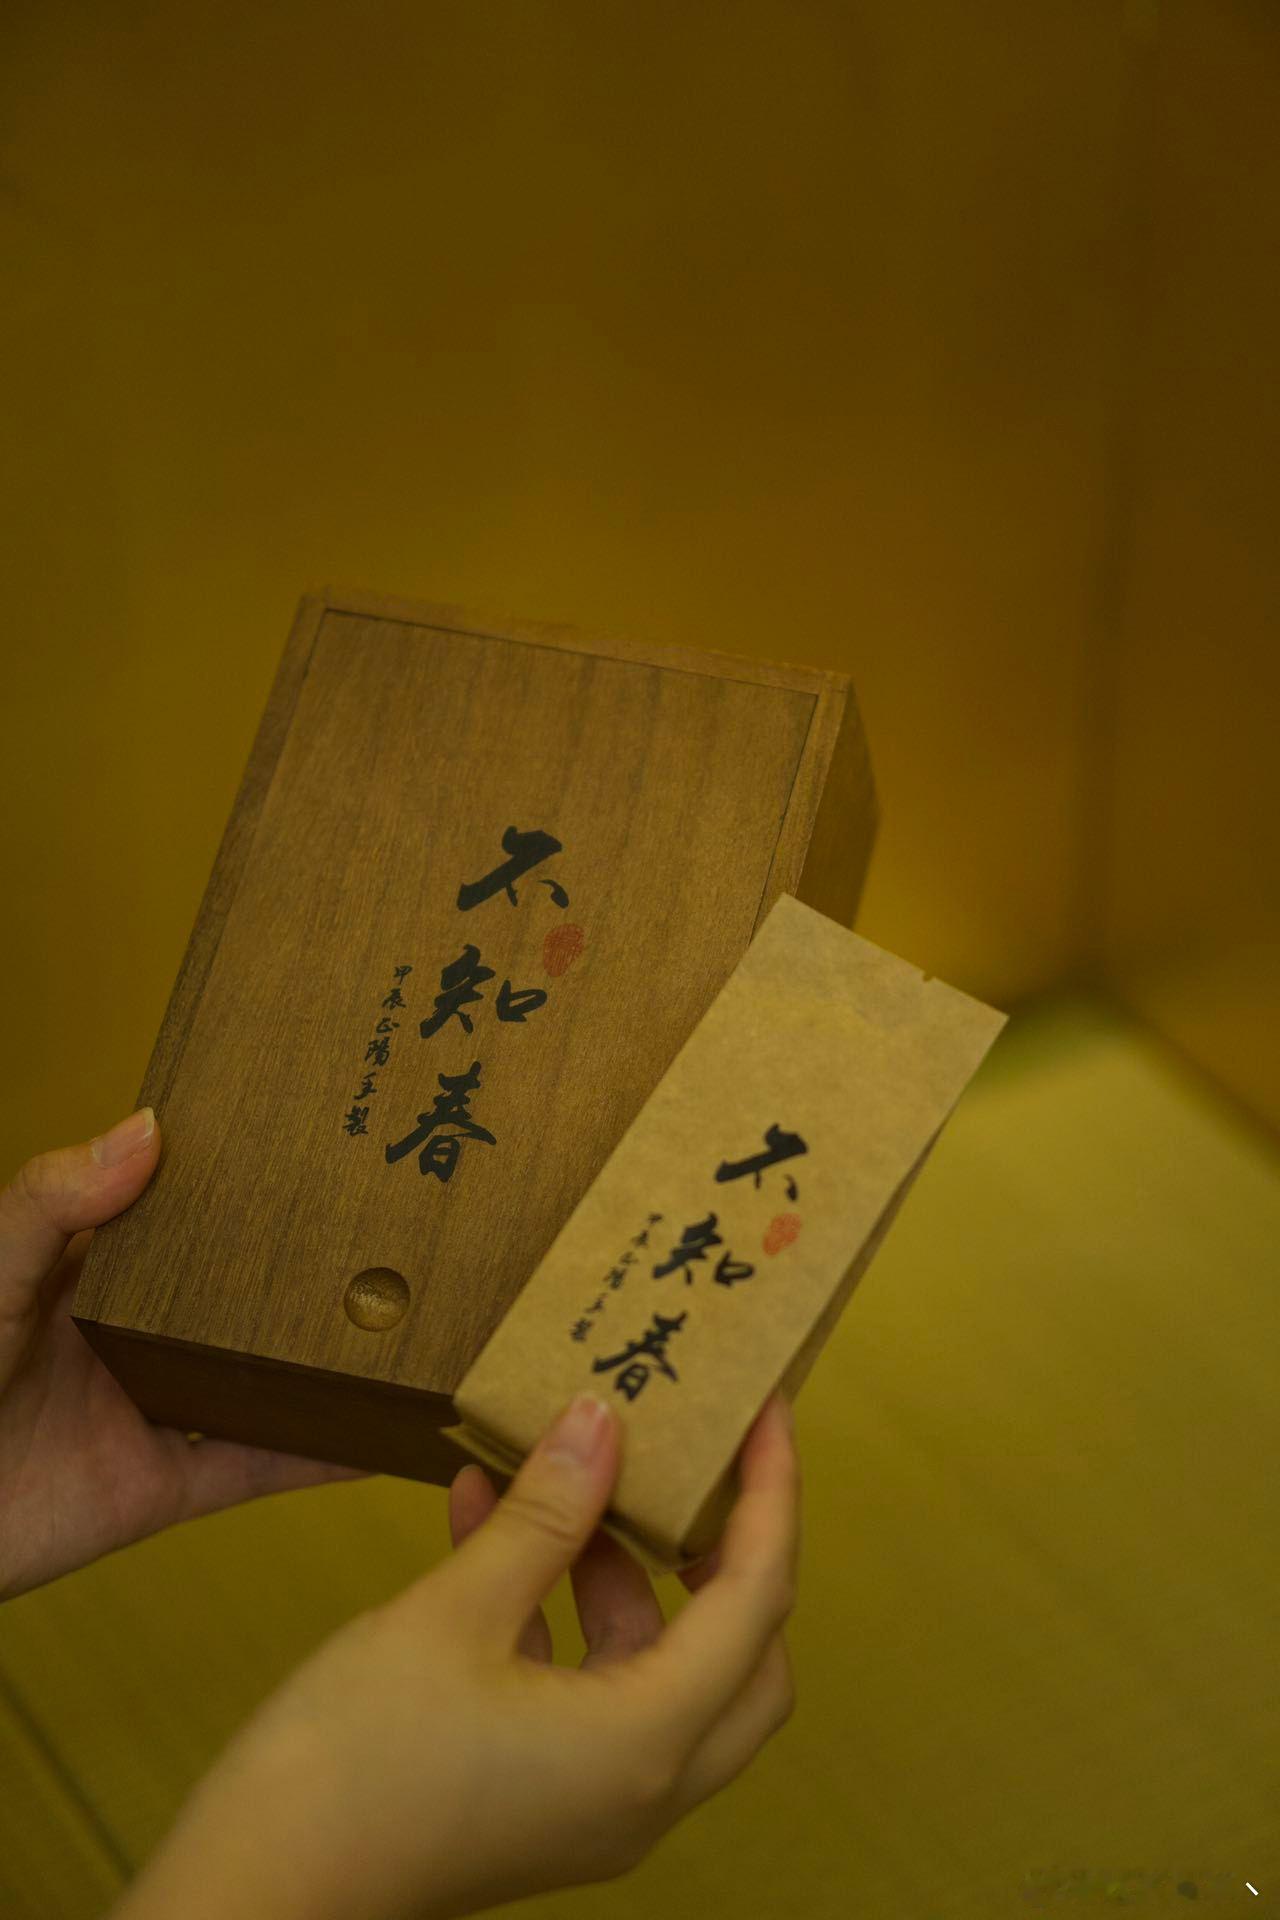 不知春
甲辰正陽手製
不知春
甲辰正陽手製